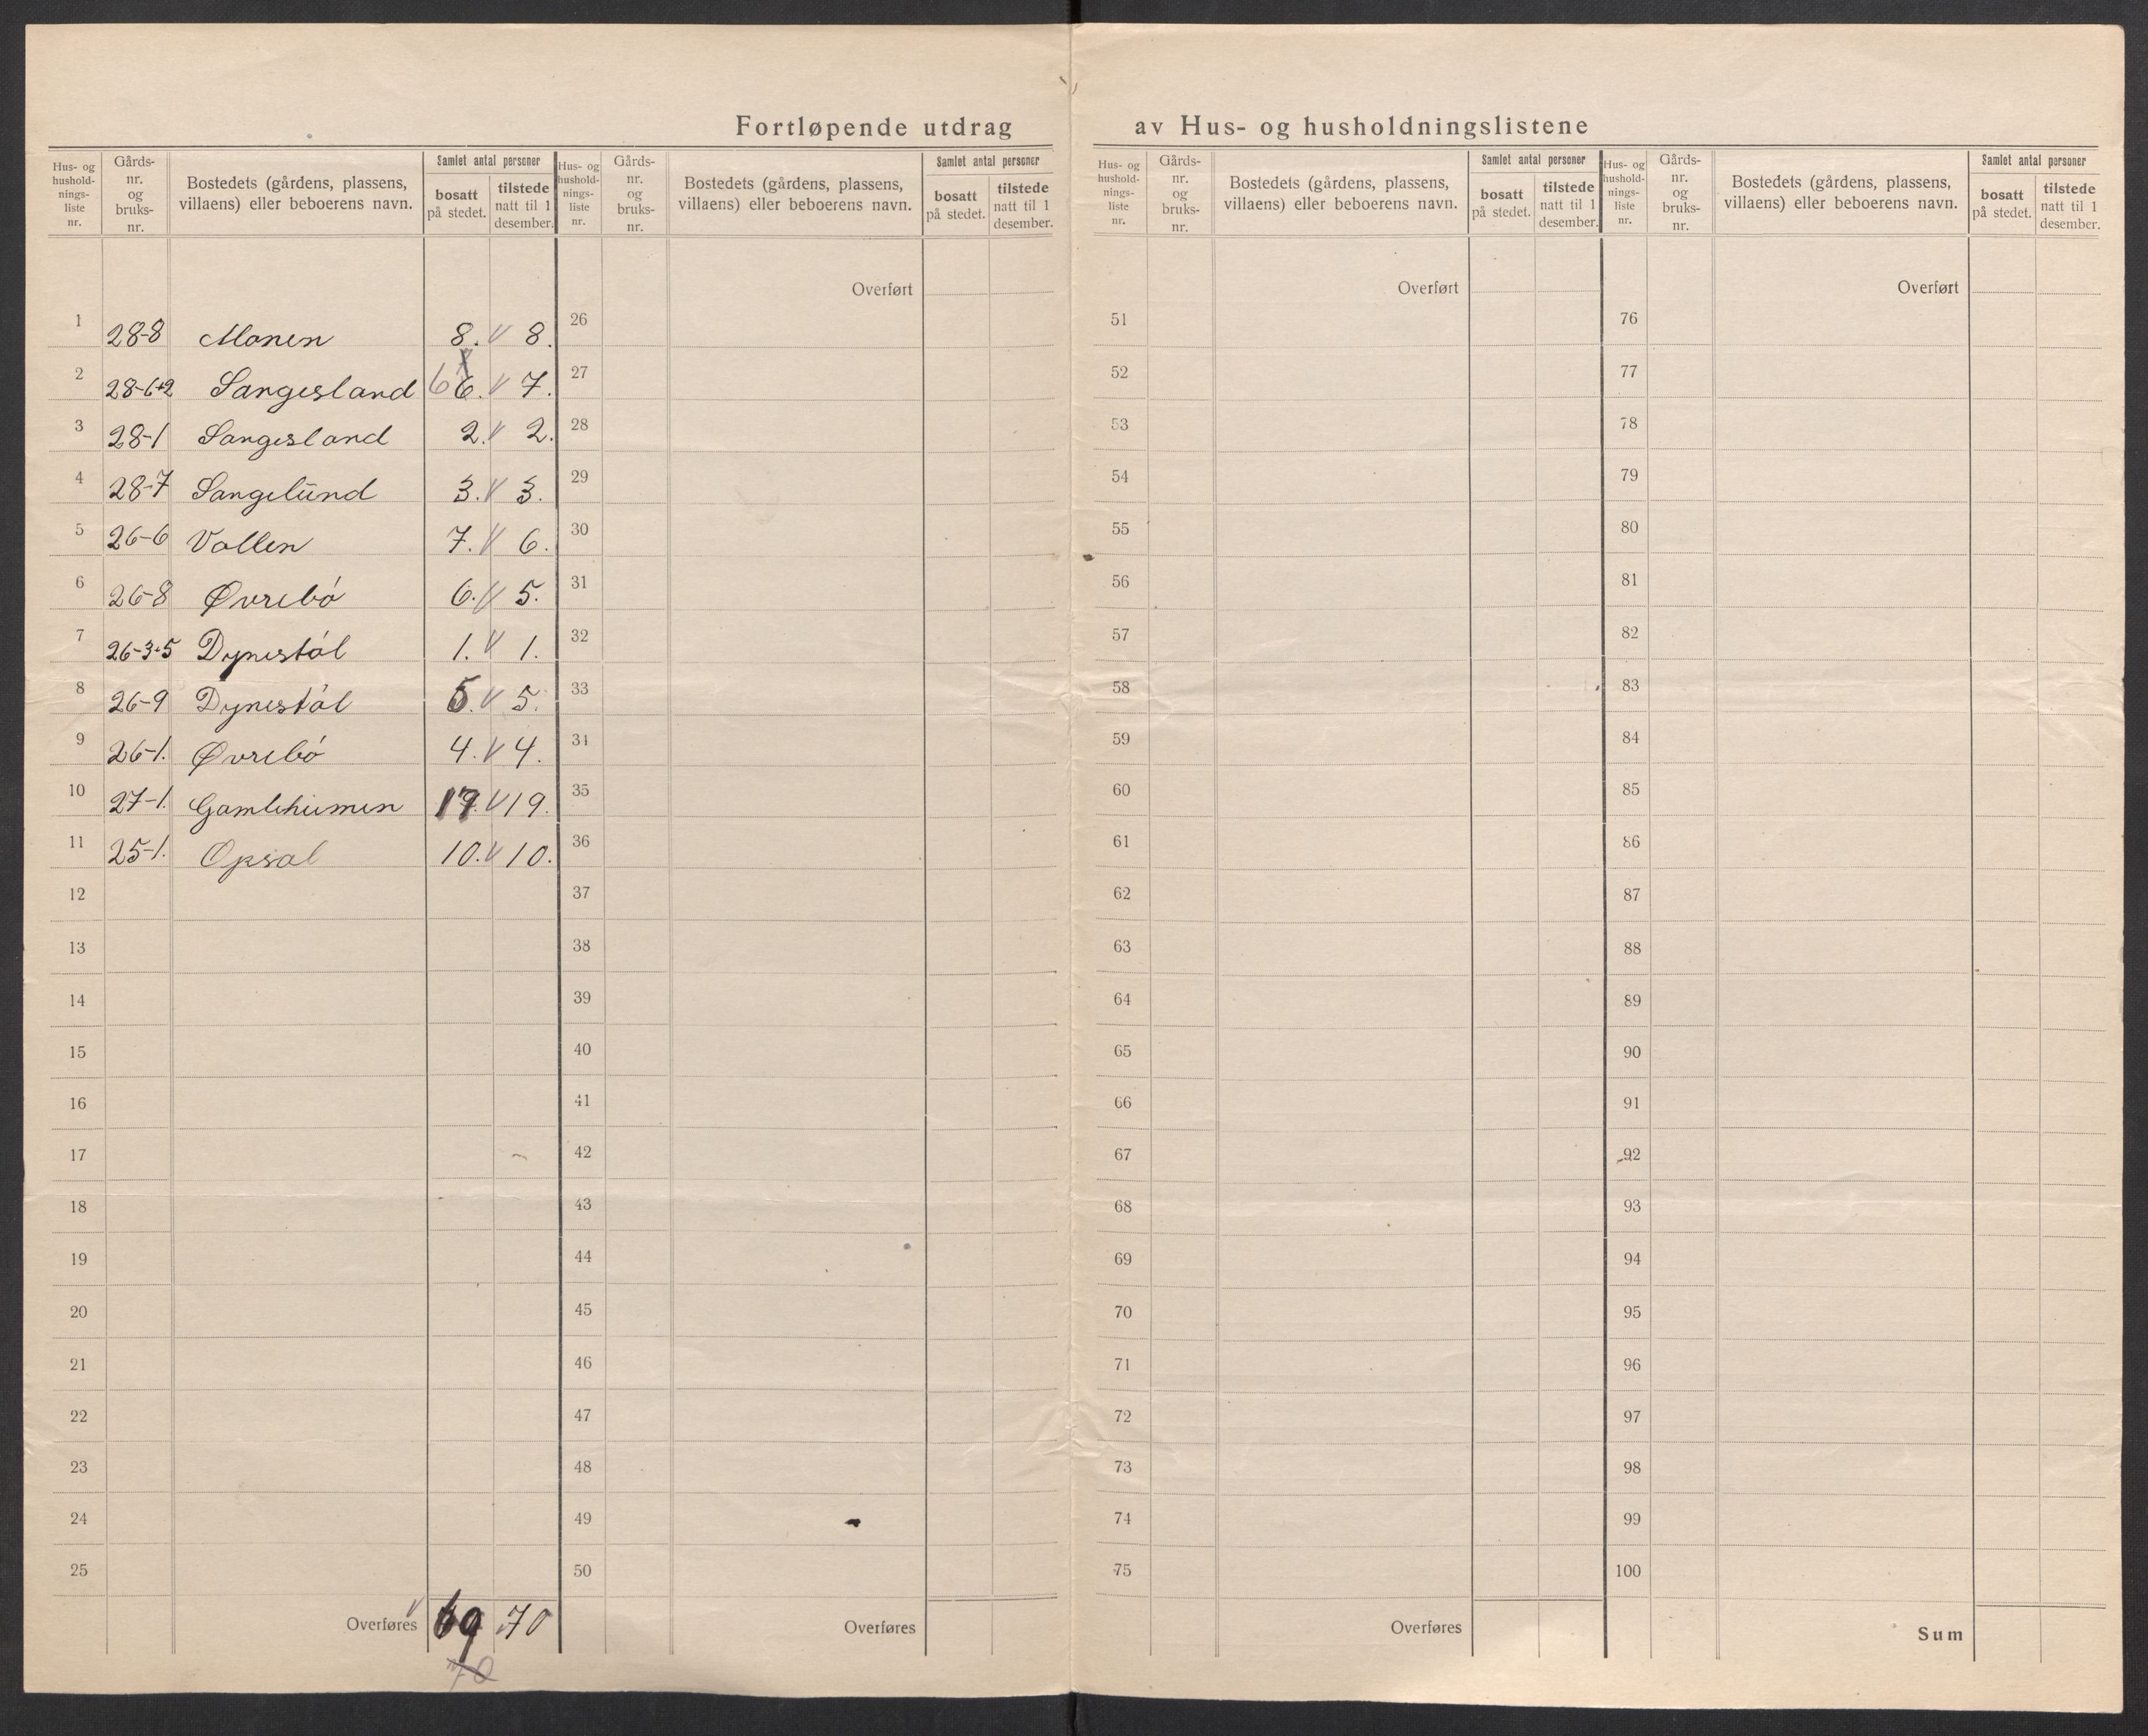 Fortløpende utdrag av Hus- og husholdningslistene
Hus- og hushold-nings-liste nr. Gårds-nr. og bruks-nr. Bostedets (gårdens, plassens, villaens) eller beboerens navn. Samlet antal personer bosatt på stedet. tilstede natt til 1 desember.
1 28-8 Monen 8. V 8.
2 28-6+2 Sangesland 6 6. V 7.
3 28-1 Sangesland 2. V 2.
4 28-7 Sangelund 3. V 3.
5 26-6 Vollen 7. V 6.
6 26-8 Øvrebó 6. V 5.
7 26-3+5 Dynestól 1. V 1.
8 26-9 Dynestól 5. V 5.
9 26-1. Øvrebó 4. V 4.
10 27-1. Gamleheimen 17. V 19.
11 25-1. Opsal 10. V 10.
12
13
14
15
16
17
18
19
20
21
22
23
24
25
Overføres V 69 70
70
Hus- og hushold-nings-liste nr. Gårds-nr. og bruks-nr. Bostedets (gårdens, plassens, villaens) eller beboerens navn. Samlet antal personer bosatt på stedet. tilstede natt til 1 desember.
Overført
26
27
28
29
30
31
32
33
34
35
36
37
38
39
40
41
42
43
44
45
46
47
48
49
50
Overføres
Hus- og hushold-nings-liste nr. Gårds-nr. og bruks-nr. Bostedets (gårdens, plassens, villaens) eller beboerens navn. Samlet antal personer bosatt på stedet. tilstede natt til 1 desember.
Overført
51
52
53
54
55
56
57
58
59
60
61
62
63
64
65
66
67
68
69
70
71
72
73
74
75
Overføres
Hus- og hushold-nings-liste nr. Gårds-nr. og bruks-nr. Bostedets (gårdens, plassens, villaens) eller beboerens navn. Samlet antal personer bosatt på stedet. tilstede natt til 1 desember.
Overført
76
77
78
79
80
81
82
83
84
85
86
87
88
89
90
91
92
93
94
95
96
97
98
99
100
Sum